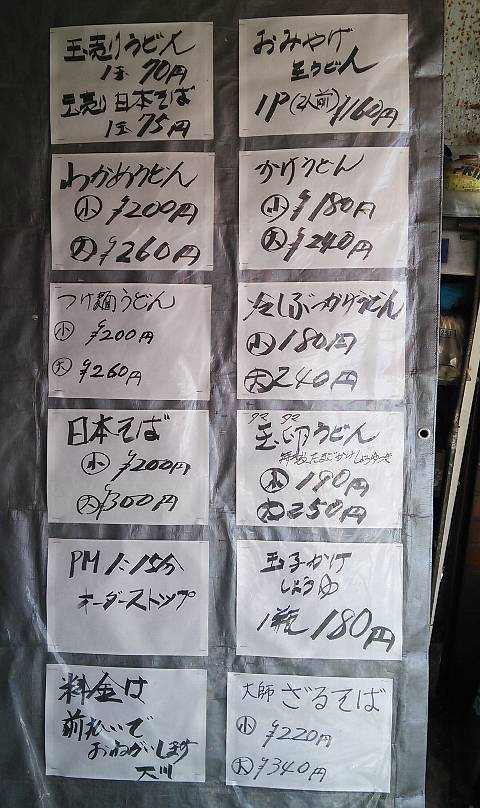 玉売りうどん
1玉 70円
玉売り日本そば
1玉 75円
おみやげ
生うどん
1P(2人前)¥160円
わかめうどん
小 ¥200円
大 ¥260円
かけうどん
小 ¥180円
大 ¥240円
つけ麺うどん
小 ¥200円
大 ¥260円
冷しぶっかけうどん
小 180円
大 240円
日本そば
小 ¥200円
大 ¥300円
タマ タマ
玉卵うどん
特製たまごかけしょうゆ
小 190円
大 250円
PM 1:15分
オーダーストップ
玉子かけ
しょうゆ
1瓶 180円
料金は
前払いで
おねがいします
大川
大師 ざるそば
小 ¥220円
大 ¥340円